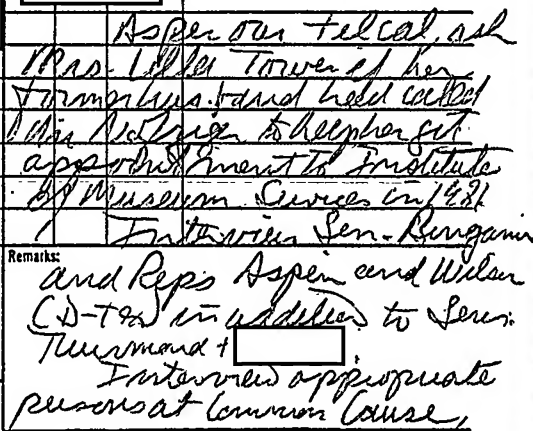 As per our telcal, ask
Mrs. Lilla Tower if her
former husband had called
Mr. Nofziger to help her get
appointment to Institute
of Museum Services in 1981.
Interview Sen. Bingaman
Remarks:
and Reps Aspin and Wilson
(D-TX) in addition to Sens.
Thurmond +
Interview appropriate
persons at Common Cause,